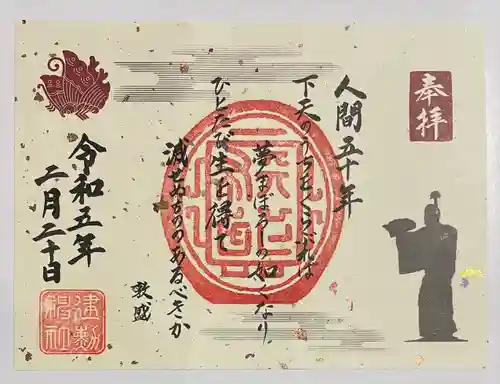 奉拝
人間五十年
下天のうちをくらぶれば
夢まぼろしの如くなり
ひとたび生を得て
滅せぬもののあるべきか
敦盛
令和五年
二月二十日
建勲神社